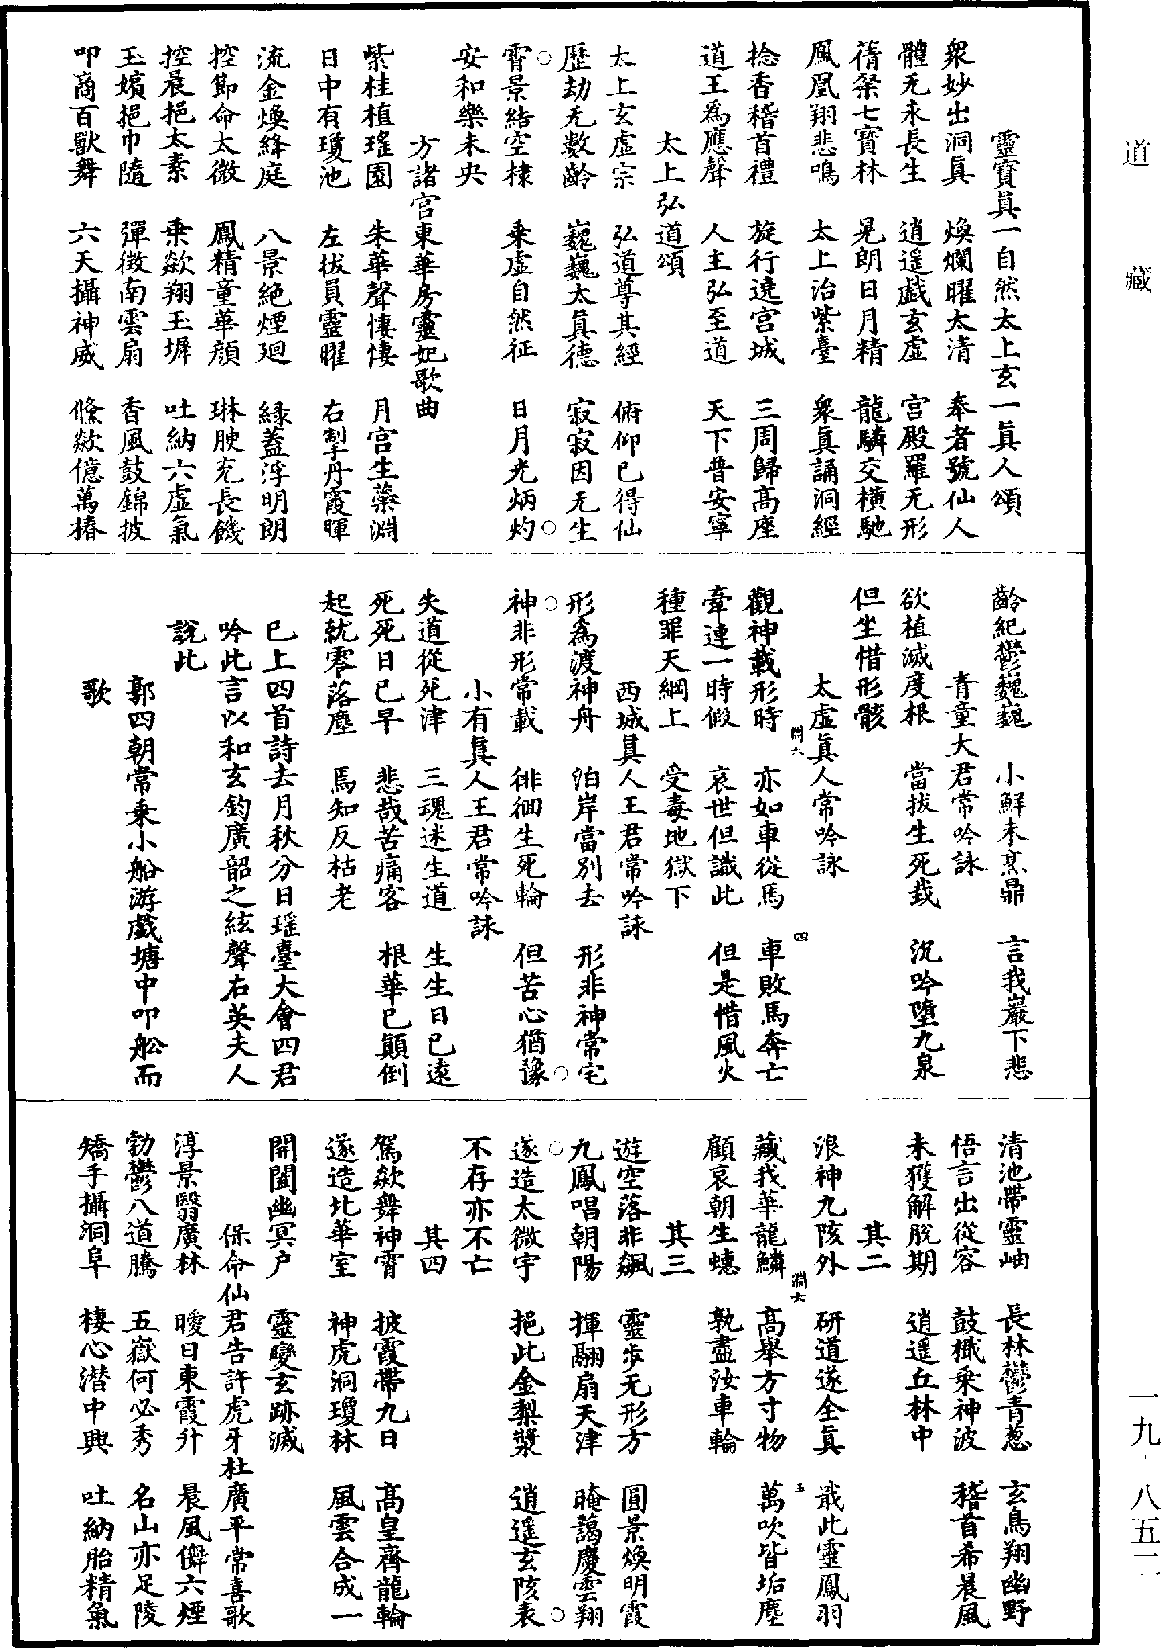 靈寶眞一自然太上玄一眞人頌
衆妙出洞眞 煥爛曜太清 奉者號仙人
體无永長生 逍遥戲玄虛 宮殿羅无形
蒨粲七寶林 晃朗日月精 龍驎交橫馳
鳳凰翔悲鳴 太上治紫臺 衆眞誦洞經
捻香稽首禮 旋行遶宮城 三周歸高座
道王爲應聲 人主弘至道 天下普安寧
太上弘道頌
太上玄虛宗 弘道尊其經 俯仰已得仙
歷劫无數齡 巍巍太眞德 寂寂因无生
霄景結空棲 乘虛自然征 日月光炳灼
安和樂未央
方諸宮東華房靈妃歌曲
紫桂植瑤園 朱華聲悽悽 月宮生蘂淵
日中有瓊池 左拔員靈曜 右掣丹霞暉
流金煥絳庭 八景絶煙廻 緑蓋浮明朗
控節命太微 鳳精童華顔 琳腴充長饑
控晨挹太素 乘欻翔玉墀 吐納六虛氣
玉嬪挹巾隨 彈徵南雲扇 香風鼓錦披
叩商百獸舞 六天攝神威 倏欻億萬椿
齡紀鬱巍巍 小鮮未烹鼎 言我巖下悲
青童大君常吟詠
欲植滅度根 當拔生死栽 沉吟墮九泉
但坐惜形骸
太虛眞人常吟詠
觀神載形時 亦如車從馬 車敗馬奔亡
牽連一時假 哀世但識此 但是惜風火
種罪天網上 受毒地獄下
西城眞人王君常吟詠
形爲渡神舟 泊岸當別去 形非神常宅
神非形常載 徘徊生死輪 但苦心猶豫
小有眞人王君常吟詠
失道從死津 三魂迷生道 生生日已遠
死死日已早 悲哉苦痛客 根華已顛倒
起就零落塵 焉知反枯老
已上四首詩去月秋分日瑤臺大會四君
吟此言以和玄鈞廣韶之絃聲右英夫人
說此
郭四朝常乘小船游戲塘中叩舩而
歌
清池帶靈岫 長林鬱青葱 玄鳥翔幽野
悟言出從容 鼓檝乘神波 稽首希晨風
未獲解脫期 逍遥丘林中
其二
浪神九陔外 研道遂全眞 戢此靈鳳羽
藏我華龍鱗 高舉方寸物 萬吹皆垢塵
顧哀朝生蟪 孰盡汝車輪
其三
遊空落非飆 靈步无形方 圓景煥明霞
九鳳唱朝陽 揮翮扇天津 晻藹慶雲翔
遂造太微宇 挹此金梨漿 逍遥玄陔表
不存亦不亡
其四
駕欻舞神霄 披霞帶九日 高皇齊龍輪
遂造北華室 神虎洞瓊林 風雲合成一
開闔幽冥户 靈變玄跡滅
保命仙君告許虎牙杜廣平常喜歌
淳景翳廣林 曖日東霞升 晨風儛六煙
勃鬱八道騰 五嶽何必秀 名山亦足陵
矯手攝洞阜 棲心潜中興 吐納胎精氣
道藏
一九-八五二